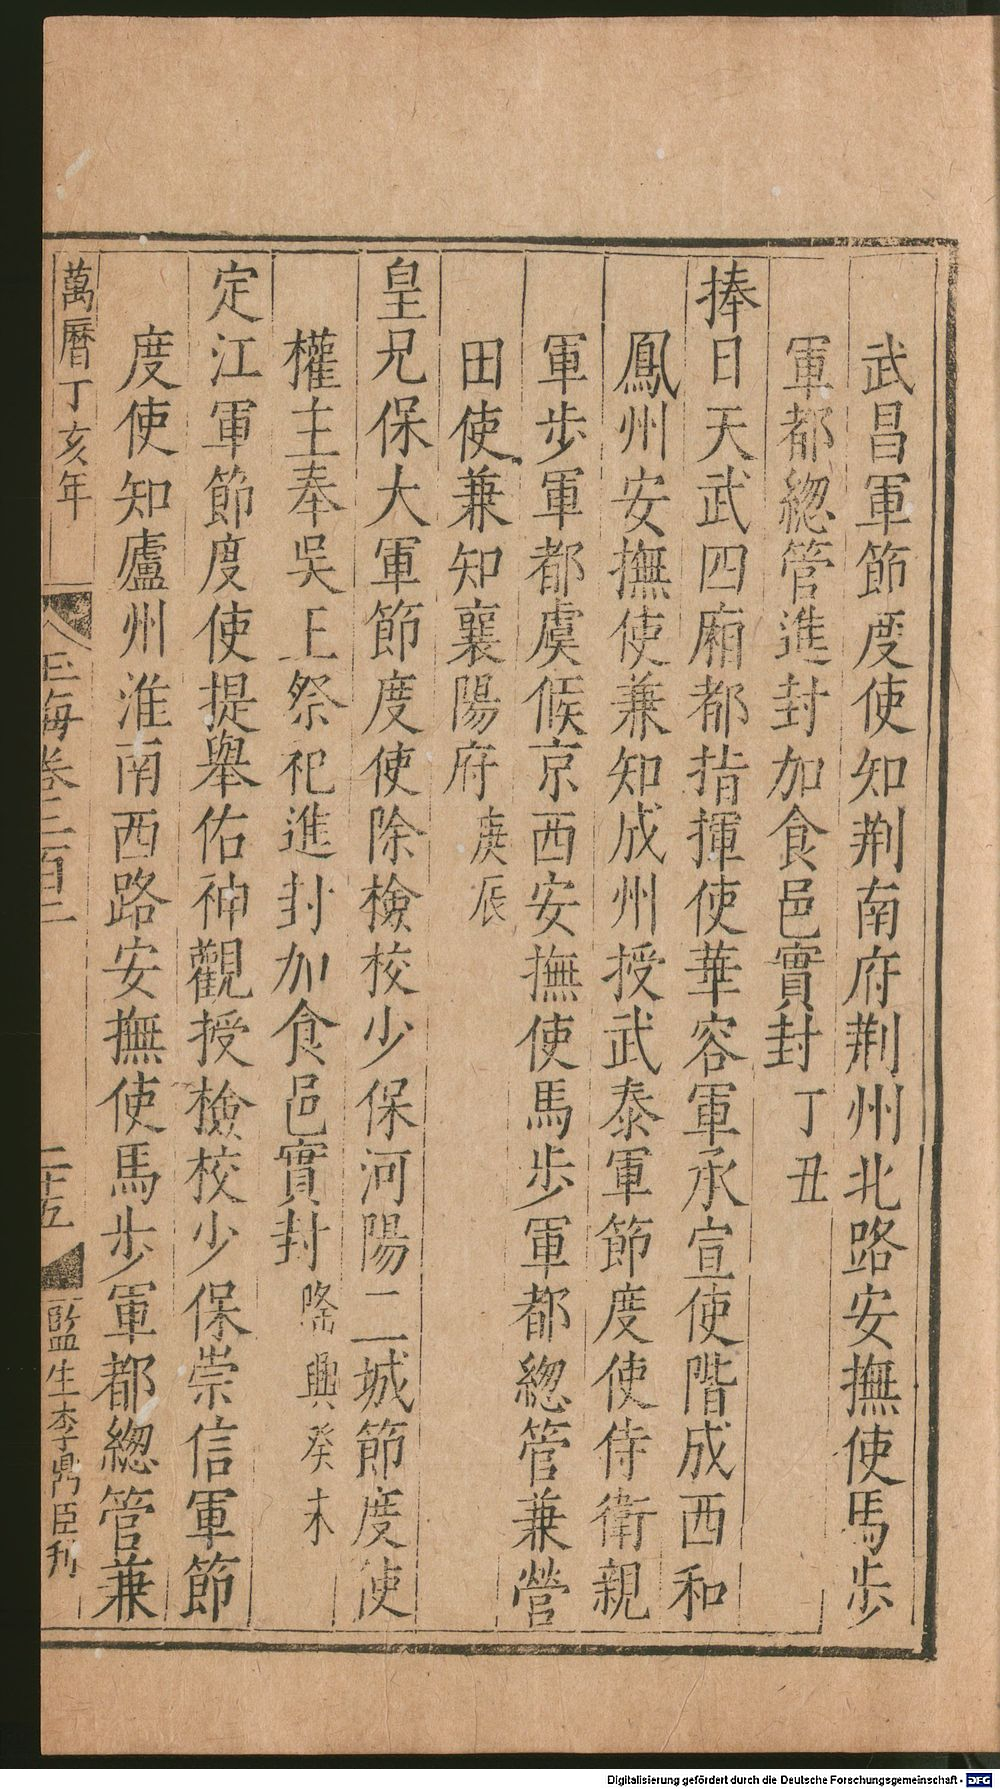 武昌軍節度使知荆南府荆州北路安撫使馬歩
軍都緫管進封加食邑實封丁丑
捧日天武四廂都指揮使華容軍承宣使階成西和
鳳州安撫使兼知成州授武泰軍節度使侍衛親
軍歩軍都虞候京西安撫使馬歩軍都緫管兼營
田使兼知襄陽府庚辰
皇兄保大軍節度使除檢校少保河陽二城節度使
權主奉吳王祭祀進封加食邑實封隆興癸未
定江軍節度使提舉佑神觀授檢校少保崇信軍節
度使知廬州淮南西路安撫使馬歩軍都緫管兼
萬曆丁亥年
玉海卷二百二
二十五
監生李鼎臣刊
Digitalisierung gefördert durch die Deutsche Forschungsgemeinschaft - DFG